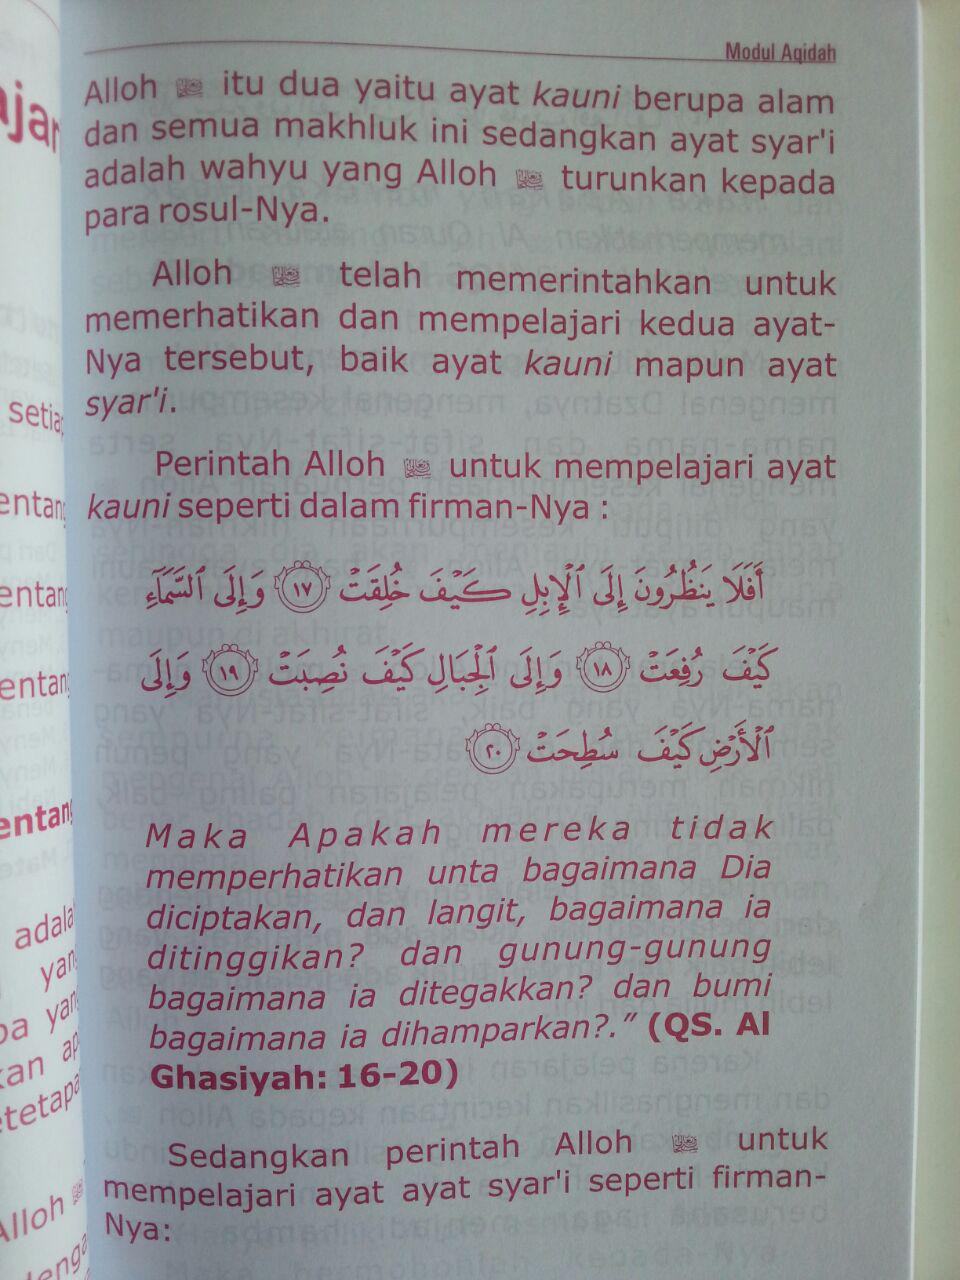 Modul Aqidah
Alloh ﷻ itu dua yaitu ayat kauni berupa alam
dan semua makhluk ini sedangkan ayat syar'i
adalah wahyu yang Alloh ﷻ turunkan kepada
para rosul-Nya.
Alloh ﷻ telah memerintahkan untuk
memerhatikan dan mempelajari kedua ayat-
Nya tersebut, baik ayat kauni mapun ayat
syar'i.
Perintah Alloh ﷻ untuk mempelajari ayat
kauni seperti dalam firman-Nya :
أَفَلَا يَنظُرُونَ إِلَى ٱلْإِبِلِ كَيْفَ خُلِقَتْ ١٧ وَإِلَى ٱلسَّمَآءِ
كَيْفَ رُفِعَتْ ١٨ وَإِلَى ٱلْجِبَالِ كَيْفَ نُصِبَتْ ١٩ وَإِلَى
ٱلْأَرْضِ كَيْفَ سُطِحَتْ ٢٠
Maka Apakah mereka tidak
memperhatikan unta bagaimana Dia
diciptakan, dan langit, bagaimana ia
ditinggikan? dan gunung-gunung
bagaimana ia ditegakkan? dan bumi
bagaimana ia dihamparkan?.” (QS. Al
Ghasiyah: 16-20)
Sedangkan perintah Alloh ﷻ untuk
mempelajari ayat ayat syar'i seperti firman-
Nya: